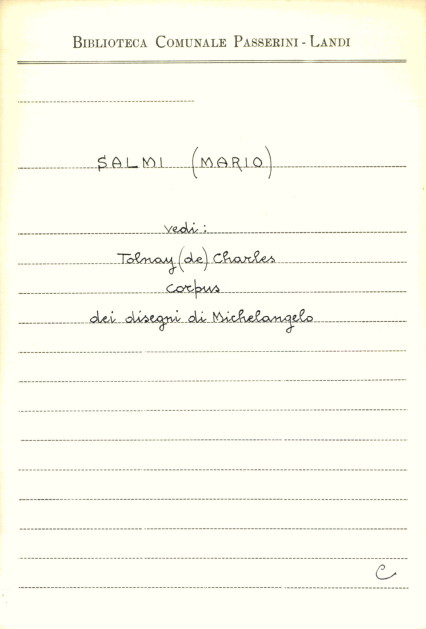 BIBLIOTECA COMUNALE PASSERINI - LANDI
SALMI (MARIO)
vedi:
Tolnay (de) Charles
corpus
dei disegni di Michelangelo
C